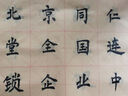 北京同仁
堂全国连
锁企业中